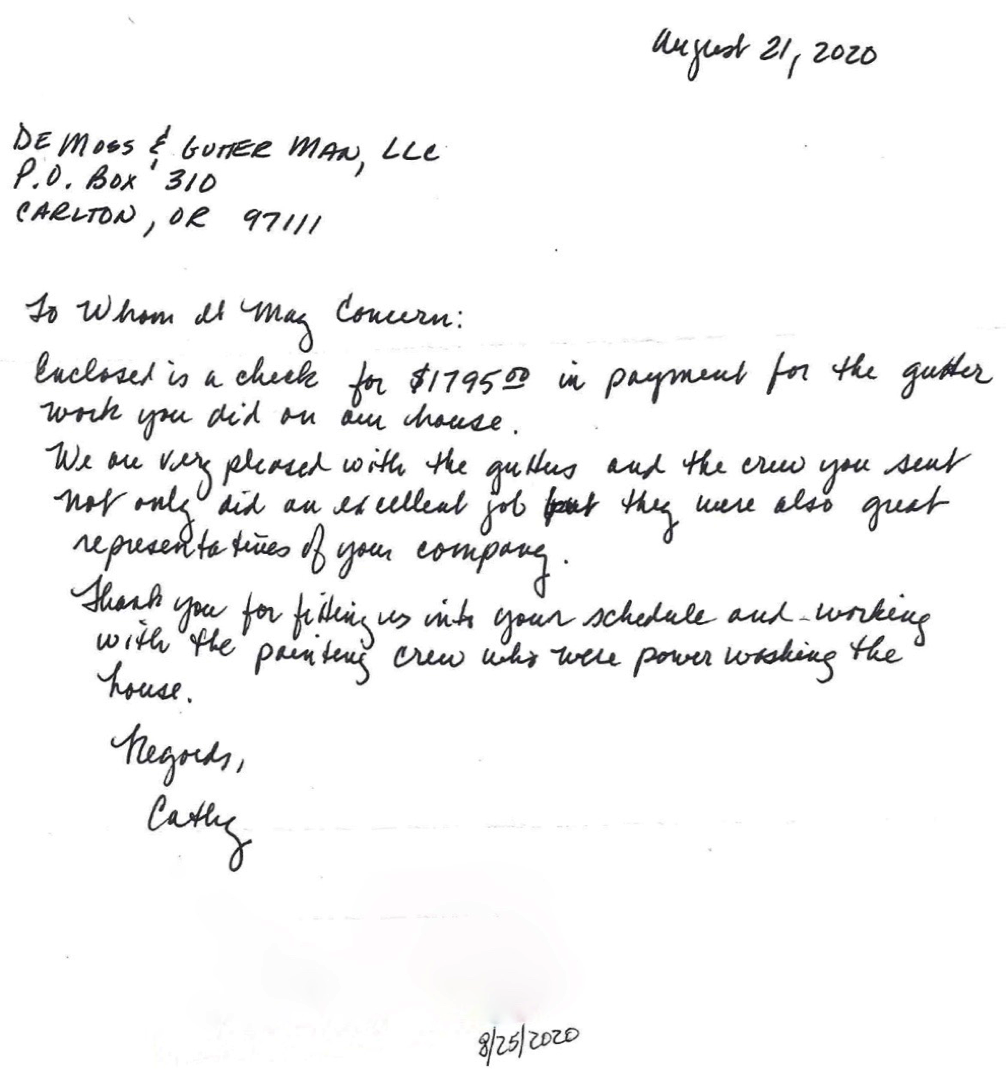 August 21, 2020
DE MOSS & GUTTER MAN, LLC
P.O. BOX 310
CARLTON, OR 97111
To Whom It May Concern:
Enclosed is a check for $1795.00 in payment for the gutter
work you did on our house.
We are very pleased with the gutters and the crew you sent
not only did an excellent job but they were also great
representatives of your company.
Thank you for fitting us into your schedule and working
with the painting crew who were power washing the
house.
Regards,
Cathy
8/25/2020